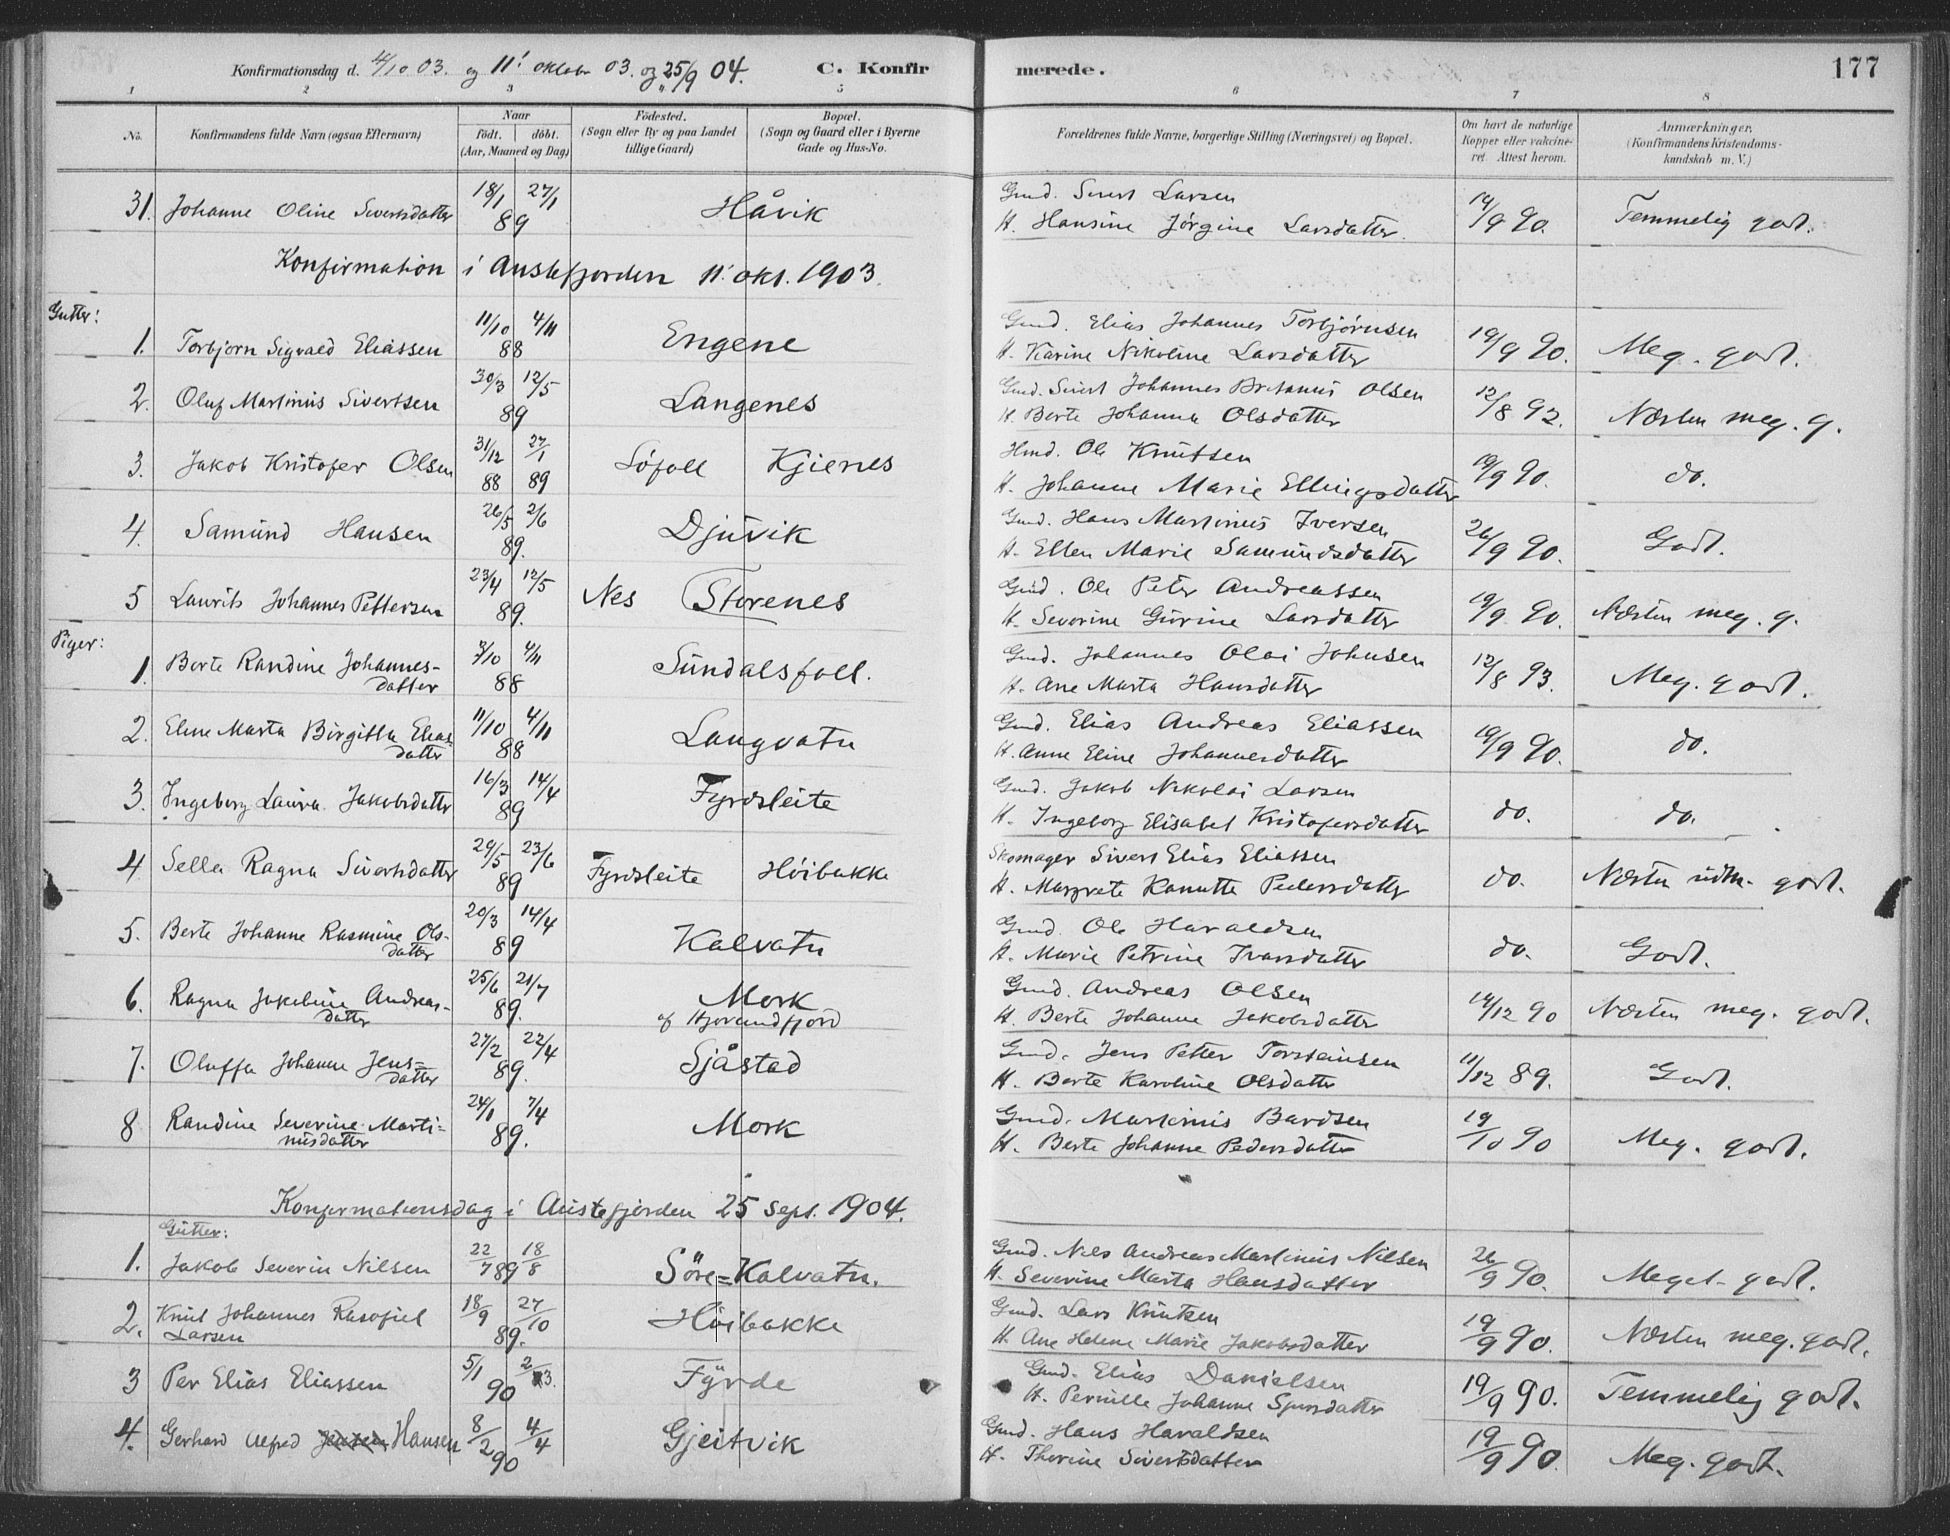 Konfirmationsdag d. 4/10 03. og 11' oktober 03. og 25/9 04. C. Konfirmerede. 177
1 2 3 5 6 7 8
No. Konfirmandens fulde Navn (ogsaa Efternavn) Naar født. døbt. (Aar, Maaned og Dag) Fødested. (Sogn eller By og paa Landet tillige Gaard) Bopæl. (Sogn og Gaard eller i Byerne Gade og Hus-No. Forældrenes fulde Navne, borgerlige Stilling (Næringsvei) og Bopæl. Om havt de naturlige Kopper eller vakcineret. Attest herom. Anmærkninger. (Konfirmandens Kristendomskundskab m. V.)
31. Johanne Oline Sivertsdatter 18/1 27/1 89 Håvik Gmd. Sivert Larsen H. Hansine Jørgine Larsdatter. 14/9 90. Temmelig godt.
Konfirmation i Austefjorden 11' okt. 1903.
Gutter:
1. Torbjørn Sigvald Eliassen 11/10 4/11 88 Engene Gmd. Elias Johannes Torbjørnsen H. Karine Nikoline Larsdatter 19/9 90. Meg. godt.
2. Oluf Martinus Sivertsen 30/3 12/5 89 Langenes Gmd. Sivert Johannes Britanus Olsen H. Berte Johanna Olsdatter 12/8 92. Næsten meg. g.
3. Jakob Kristofer Olsen 31/12 88 27/1 89 Løfoll Kjienes Hmd. Ole Knutsen H. Johanne Marie Ellingsdatter 19/9 90. do.
4. Samund Hansen 26/5 2/6 89. Djuvik Gmd. Hans Martinus Iversen H. Ellen Marie Samundsdatter 26/9 90. Godt.
5 Laurits Johannes Pettersen 23/4 12/5 89. Nes Storenes Gmd. Ole Peter Andreassen H. Severine Gurine Larsdatter 19/9 90. Næsten meg. g.
Piger:
1. Berte Randine Johannesdatter /10 4/11 88 Sundalsfoll. Gmd. Johannes Olai Johnsen H. Ane Marta Hansdatter 12/8 93. Meg. godt.
2. Eline Marta Birgitta Eliasdatter 11/10 4/11 88 Langvatn Gmd. Elias Andreas Eliassen H. Anne Eline Johannesdatter 19/9 90. do.
3. Ingeborg Laura Jakobsdatter 16/3 14/4 89 Fyrdsleite Gmd. Jakob Nikolai Larsen H. Ingeborg Elisabet Kristofersdatter do. do.
4 Sella Ragna Sivertsdatter 29/5 23/6 89 Fyrdsleite Høibakke Skomager Sivert Elias Eliassen H. Margrete Kanutte Pedersdatter do. Næsten udm. godt.
5. Berte Johanne Rasmine Olsdatter 20/3 14/4 89 Kalvatn Gmd. Ole Haraldsen H. Marie Petrine Ivarsdatter do. Godt.
6. Ragna Jakobine Andreasdatter 25/6 21/7 89. Mork af Hjørundfjord Gmd. Andreas Olsen H. Berte Johanne Jakobsdatter 14/12 90 Næsten meg. godt.
7. Oluffa Johanne Jensdatter 27/2 22/4 89. Sjåstad Gmd. Jens Petter Torsteinsen H. Berte Karoline Olsdatter 11/12 89. Godt.
8 Randine Severine Martinusdatter 24/1 7/4 89. Mork Gmd. Martinus Bardsen H. Berte Johanne Pedersdatter 19/10 90 Meg. godt.
Konfirmationsdag i Austefjorden 25 Sept. 1904.
Gutter:
1. Jakob Severin Nilsen 22/7 89 18/8 Søre=Kalvatn. Gmd. Nils Andreas Martinus Nilsen H. Severine Marta Hansdatter 26/9 90. Meget godt.
2. Knut Johannes Rasofiel Larsen 18/9 27/10 89. Høibakke Gmd. Lars Knutsen H. Ane Helene Marie Jakobsdatter 19/9 90. Næsten meg. godt.
3 Per Elias Eliassen 5/1 2/3. 90 Fyrde Gmd. Elias Danielsen H. Pernille Johanne Sjursdatter 19/9 90. Temmelig godt.
4. Gerhard Alfred Jensen Hansen 8/2 4/4 90 Gjeitvik Gmd. Hans Haraldsen H. Thorine Sivertsdatter 19/9 90. Meg. godt.